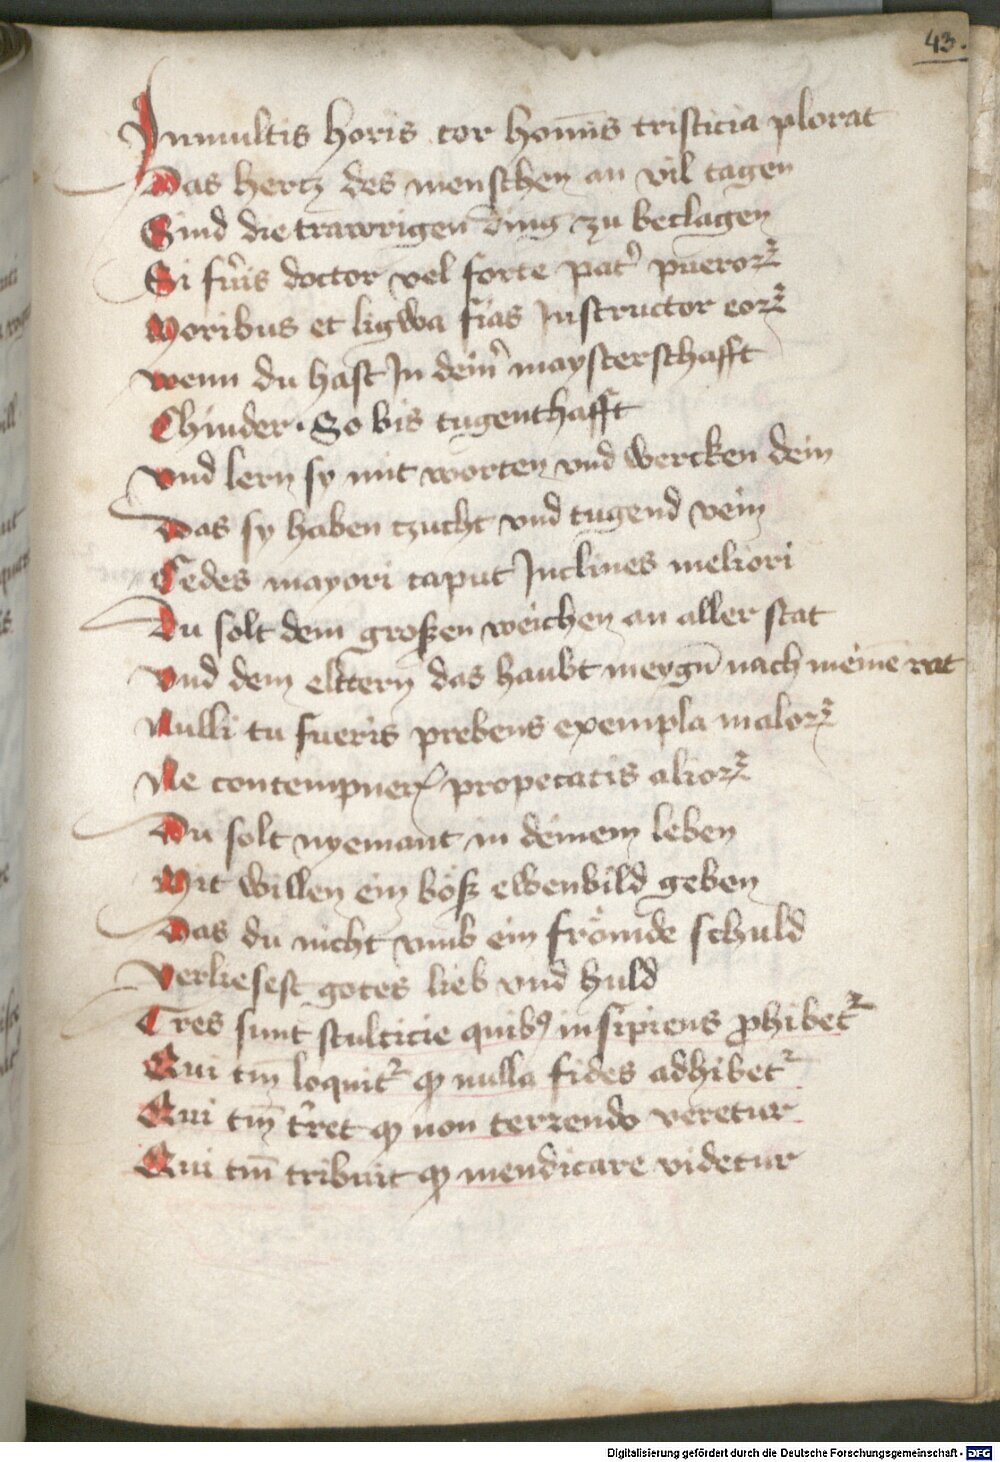 43.
Inmultis horis cor homīs tristicia plorat
Das hertz des menschen an vil tagen
Sind die trawrigen ding zu beclagen
Si fu̓is doctor vel forte pat̓ pueroꝝ
Moribus et ligwa fias Instructor eoꝝ
wenn du hast In dein̓ maysterschafft
Chinder · So bis tugenthafft
vnd lern sy mit worten vnd wercken dein
Das sy haben tzucht vnd tugend vein
Cedes mayori caput Inclines meliori
Du solt dem groszen weichen an aller stat
vnd dem elttern das haubt neygn̄ nach meinē rat
Nulli tu fueris prebens exempla maloꝝ
Ne contempneris propeccatis alioꝝ
Du solt nyemant in deinem leben
Mit willen ein bösz ewenbild geben
Das du nicht vmb ein frömde schuld
Verliesest gotes lieb vnd huld
Tres sunt stulticie quibꝰ insipiens ꝓhibet᷑
Qui tm̄ loquit᷑ ꝙ nulla fides adhibet᷑
Qui tm̄ t̓ret ꝙ non terrendo veretur
Qui tm̄ tribuit ꝙ mendicare videtur
Digitalisierung gefördert durch die Deutsche Forschungsgemeinschaft - DFG